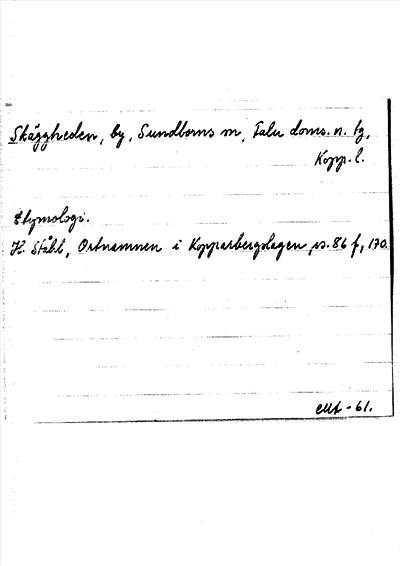 Skäggheden, by, Sundborns sn, Falu doms. n. tg,
Kopp. l.
Etymologi.
H. Ståhl, Ortnamnen i Kopparbergslagen, s. 86 f, 170.
-61.